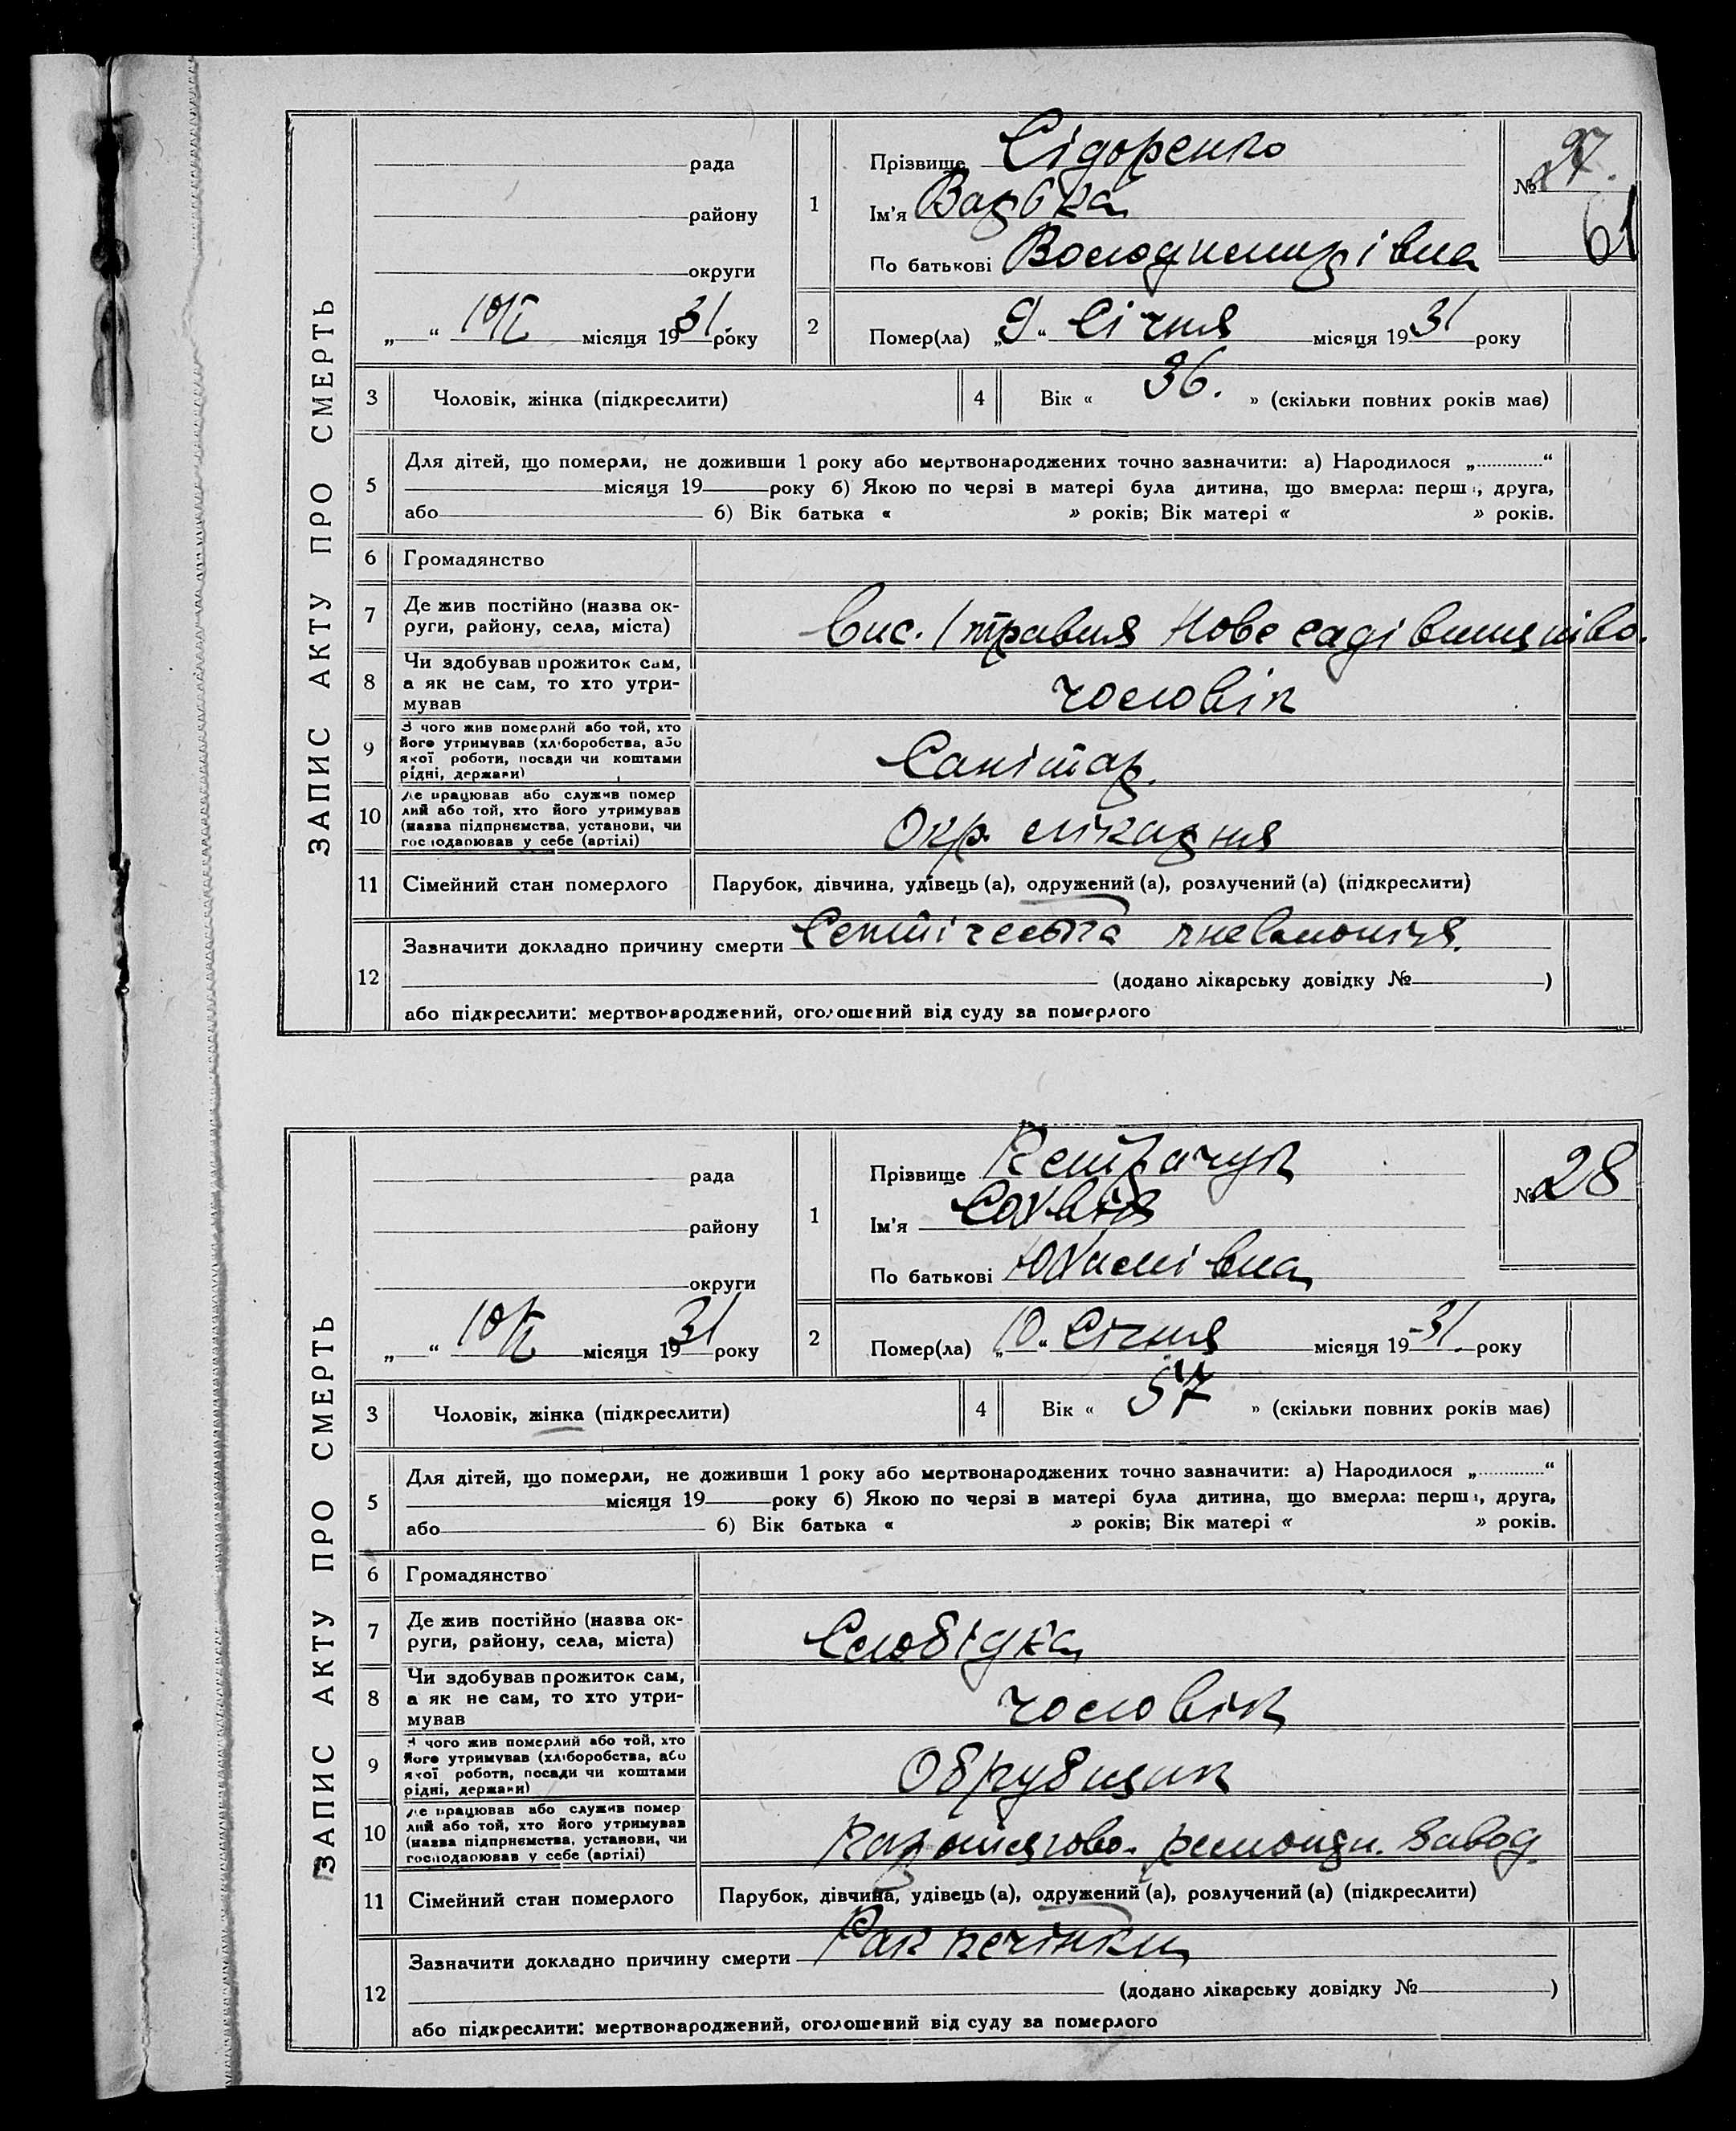 ЗАПИС АКТУ ПРО СМЕРТЬ
рада
району
округи
„ “ 10/I місяця 1931 року
1
Прізвище Сідоренко
Ім'я Варька
По батькові Володимирівна
№ 27.
61
2
Помер(ла) „9“ Січня місяця 1931 року
3 Чоловік, жінка (підкреслити)
4 Вік « 36. » (скільки повних років має)
5
Для дітей, що померли, не доживши 1 року або мертвонароджених точно зазначити: а) Народилося „ “
місяця 19 року б) Якою по черзі в матері була дитина, що вмерла: перш , друга,
або б) Вік батька « » років; Вік матері « » років.
6 Громадянство
7
Де жив постійно (назва ок-
руги, району, села, міста)
вис. 1 травня Нове садівництво.
8
Чи здобував прожиток сам,
а як не сам, то хто утри-
мував
чоловік
9
З чого жив померлий або той, хто
його утримував (хліборобства, або
якої роботи, посади чи коштами
рідні, держави)
Санітар.
10
Де працював або служив помер
лий або той, хто його утримував
(назва підприємства, установи, чи
господарював у себе (артілі)
Окр. лікарня
11 Сімейний стан померлого
Парубок, дівчина, удівець (а), одружений (а), розлучений (а) (підкреслити)
12
Зазначити докладно причину смерти пневмонія.
(додано лікарську довідку № )
або підкреслити: мертвонароджений, оголошений від суду за померлого
ЗАПИС АКТУ ПРО СМЕРТЬ
рада
району
округи
„ “ 10/I місяця 1931 року
1
Прізвище
Ім'я
По батькові
№ 28
2
Помер(ла) „10“ Січня місяця 19-31. року
3 Чоловік, жінка (підкреслити)
4 Вік « 57 » (скільки повних років має)
5
Для дітей, що померли, не доживши 1 року або мертвонароджених точно зазначити: а) Народилося „ “
місяця 19 року б) Якою по черзі в матері була дитина, що вмерла: перш , друга,
або б) Вік батька « » років; Вік матері « » років.
6 Громадянство
7
Де жив постійно (назва ок-
руги, району, села, міста)
Слобідка
8
Чи здобував прожиток сам,
а як не сам, то хто утри-
мував
чоловік
9
З чого жив померлий або той, хто
його утримував (хліборобства, або
якої роботи, посади чи коштами
рідні, держави)
Обрубщик
10
Де працював або служив помер
лий або той, хто його утримував
(назва підприємства, установи, чи
господарював у себе (артілі)
завод.
11 Сімейний стан померлого
Парубок, дівчина, удівець (а), одружений (а), розлучений (а) (підкреслити)
12
Зазначити докладно причину смерти Рак печінки
(додано лікарську довідку № )
або підкреслити: мертвонароджений, оголошений від суду за померлого